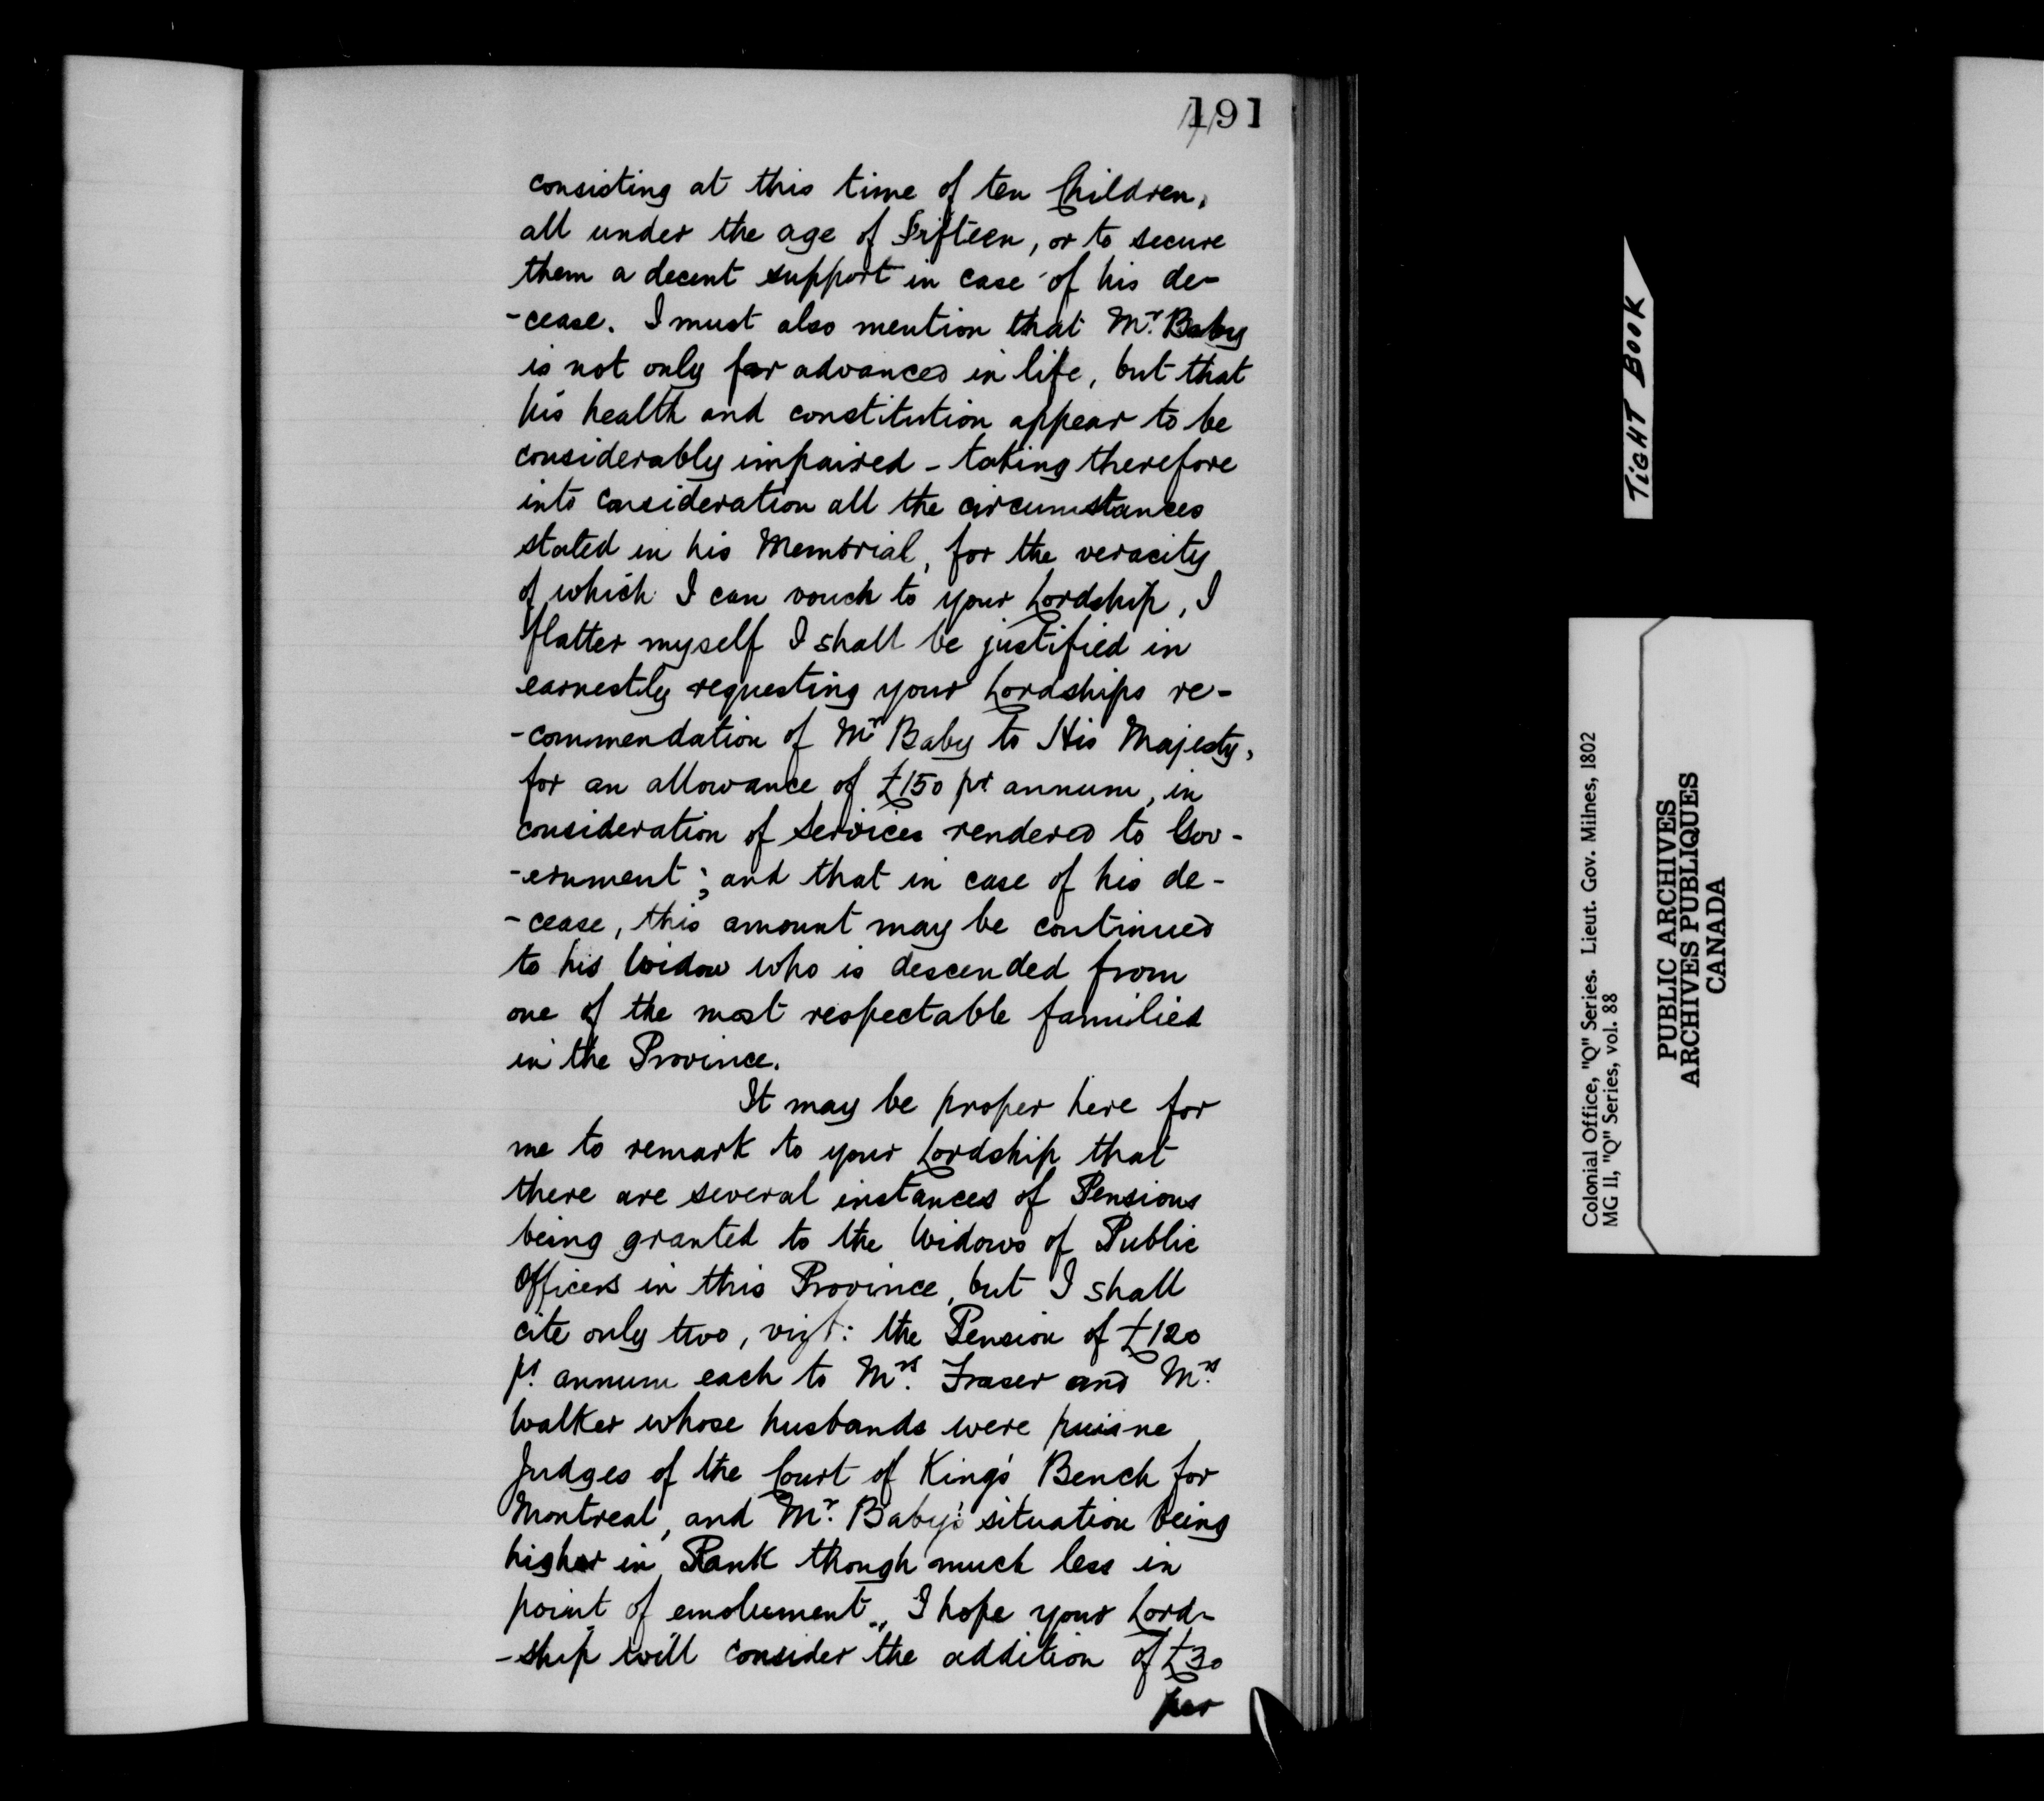 191
consisting at this time of ten Children,
all under the age of Fifteen, or to secure
them a decent support in case of his de-
-cease. I must also mention that Mr. Baby
is not only far advanced in life, but that
his health and constitution appear to be
considerably impaired - taking therefore
into consideration all the circumstances
stated in his Memorial, for the veracity
of which I can vouch to your Lordship, I
flatter myself I shall be justified in
earnestly requesting your Lordships re-
-commendation of Mr Baby to His Majesty,
for an allowance of £150 pr annum, in
consideration of Services rendered to Gov-
-ernment; and that in case of his de-
-cease, this amount may be continued
to his Widow who is descended from
one of the most respectable families
in the Province.
It may be proper here for
me to remark to your Lordship that
there are several instances of Pensions
being granted to the Widows of Public
Officers in this Province, but I shall
cite only two, vizt: the Pension of £120
pr. annum each to Mrs. Fraser and Mrs.
Walker whose husbands were puisne
Judges of the Court of King's Bench for
Montreal, and Mr. Baby's situation being
higher in Rank though much less in
point of emolument, I hope your Lord-
-ship will consider the addition of £30
per
TIGHT BOOK
Colonial Office, "Q" Series. Lieut. Gov. Milnes, 1802
MG 11, "Q" Series, vol. 88
PUBLIC ARCHIVES
ARCHIVES PUBLIQUES
CANADA